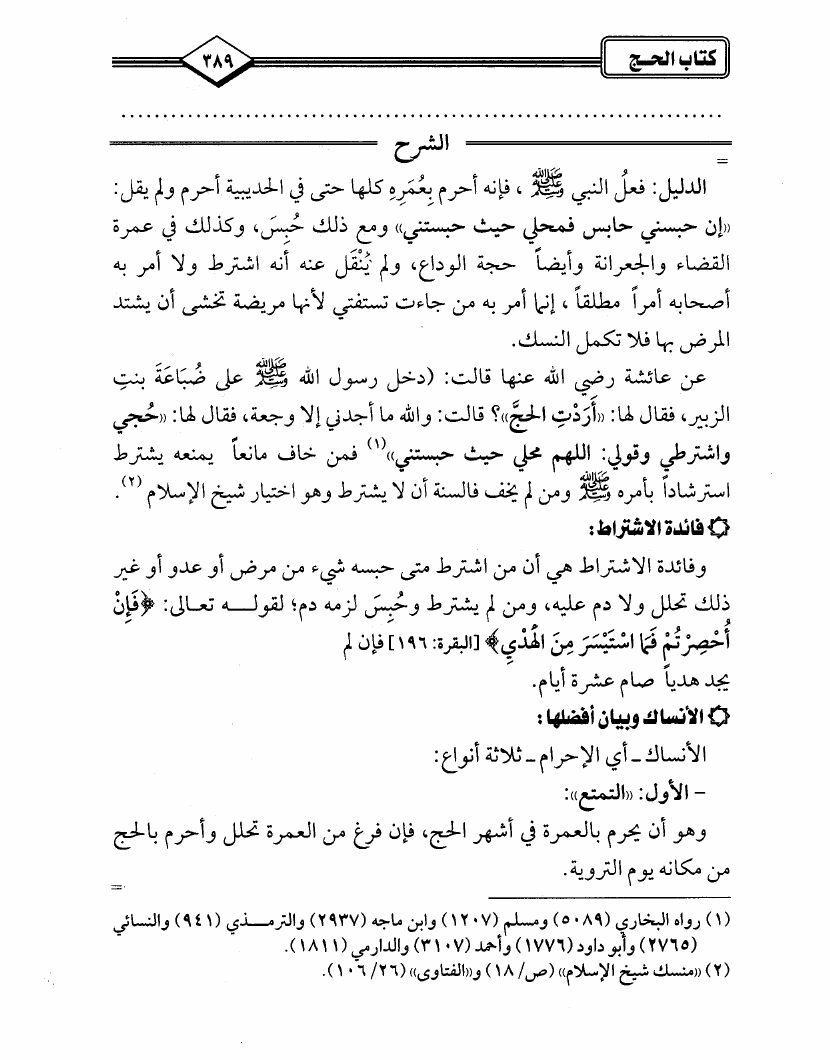 كتاب الحـج
٣٨٩
الشرح
=
الدليل: فعلُ النبي ﷺ ، فإنه أحرم بِعُمَرِهِ كلها حتى في الحديبية أحرم ولم يقل:
«إن حبسني حابس فمحلي حيث حبستني» ومع ذلك حُبِسَ، وكذلك في عمرة
القضاء والجعرانة وأيضاً حجة الوداع، ولم يُنْقَل عنه أنه اشترط ولا أمر به
أصحابه أمراً مطلقاً ، إنما أمر به من جاءت تستفتي لأنها مريضة تخشى أن يشتد
المرض بها فلا تكمل النسك.
عن عائشة رضي الله عنها قالت: (دخل رسول الله ﷺ على ضُبَاعَةَ بنتِ
الزبير، فقال لها: «أَرَدْتِ الحجَّ»؟ قالت: والله ما أجدني إلا وجعة، فقال لها: «حُجي
واشترطي وقولي: اللهم محلي حيث حبستني»(١) فمن خاف مانعاً يمنعه يشترط
استرشاداً بأمره ﷺ ومن لم يخف فالسنة أن لا يشترط وهو اختيار شيخ الإسلام (٢).
۞ فائدة الاشتراط:
وفائدة الاشتراط هي أن من اشترط متى حبسه شيء من مرض أو عدو أو غير
ذلك تحلل ولا دم عليه، ومن لم يشترط وحُبِسَ لزمه دم؛ لقولـــه تعـالى: ﴿فَإِنْ
أُحْصِرْتُمْ فَمَا اسْتَيْسَرَ مِنَ الْهَدْيِ﴾ [البقرة: ١٩٦] فإن لم
يجد هدياً صام عشرة أيام.
۞ الأنساك وبيان أفضلها:
الأنساك ـ أي الإحرام ـ ثلاثة أنواع:
– الأول: «التمتع»:
وهو أن يحرم بالعمرة في أشهر الحج، فإن فرغ من العمرة تحلل وأحرم بالحج
من مكانه يوم التروية.
=
(١) رواه البخاري (٥٠٨٩) ومسلم (١٢٠٧) وابن ماجه (٢٩٣٧) والترمـــذي (٩٤١) والنسائي
(٢٧٦٥) وأبو داود (١٧٧٦) وأحمد (٣١٠٧) والدارمي (١٨١١).
(٢) «منسك شيخ الإسلام» (ص/ ١٨) و«الفتاوى» (٢٦/ ١٠٦).